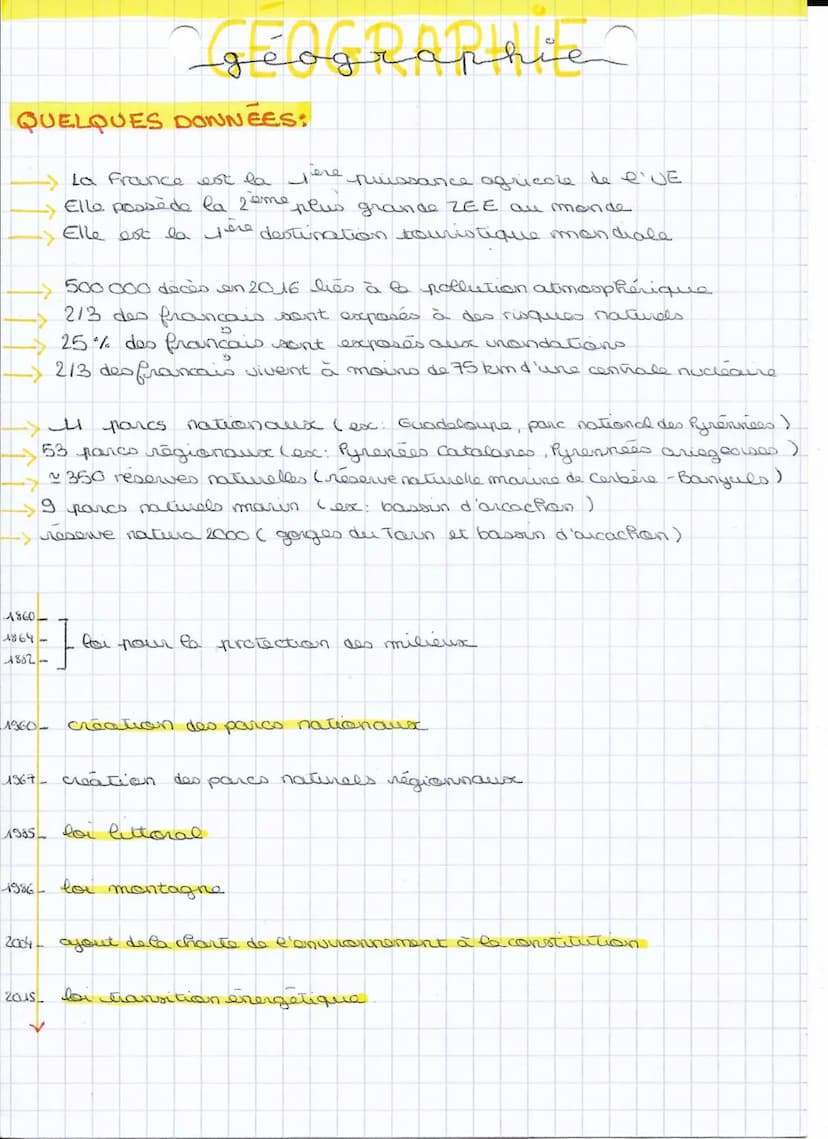 GÉOGRAPHIE
géographie
QUELQUES DONNÉES:
→ La France est la 1ère puissance agricole de l'UE
→ Elle possède la 2ème plus grande ZEE au monde
→ Elle est la 1ère destination touristique mondiale
→ 500 000 décès en 2016 liés à la pollution atmosphérique
→ 2/3 des français sont exposés à des risques naturels
→ 25 % des français sont exposés aux inondations
→ 2/3 des français vivent à moins de 75 km d'une centrale nucléaire
→ 11 parcs nationaux (ex: Guadeloupe, parc national des Pyrénnées)
→ 53 parcs régionaux (ex: Pyrenées Catalanes, Pyrennées ariegeoises)
→ ≃ 350 réserves naturelles (réserve naturelle marine de Cerbère - Banyuls)
→ 9 parcs naturels marin (ex: bassin d'arcachon)
→ réserve natura 2000 (gorges du Tarn et bassin d'arcachon)
1860
1864
1882
loi pour la protection des milieux
1960 création des parcs nationaux
1967 création des parcs naturels régionnaux
1985 loi littoral
1986 loi montagne
2004 ajout de la charte de l'environnement à la constitution
2015 loi transition énergétique